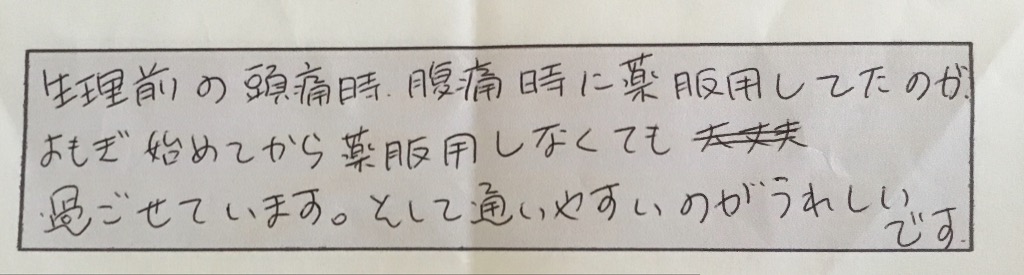 生理前の頭痛時.腹痛時に薬服用してたのが.
よもぎ始めてから薬服用しなくても
過ごせています。そして通いやすいのがうれしい
です.